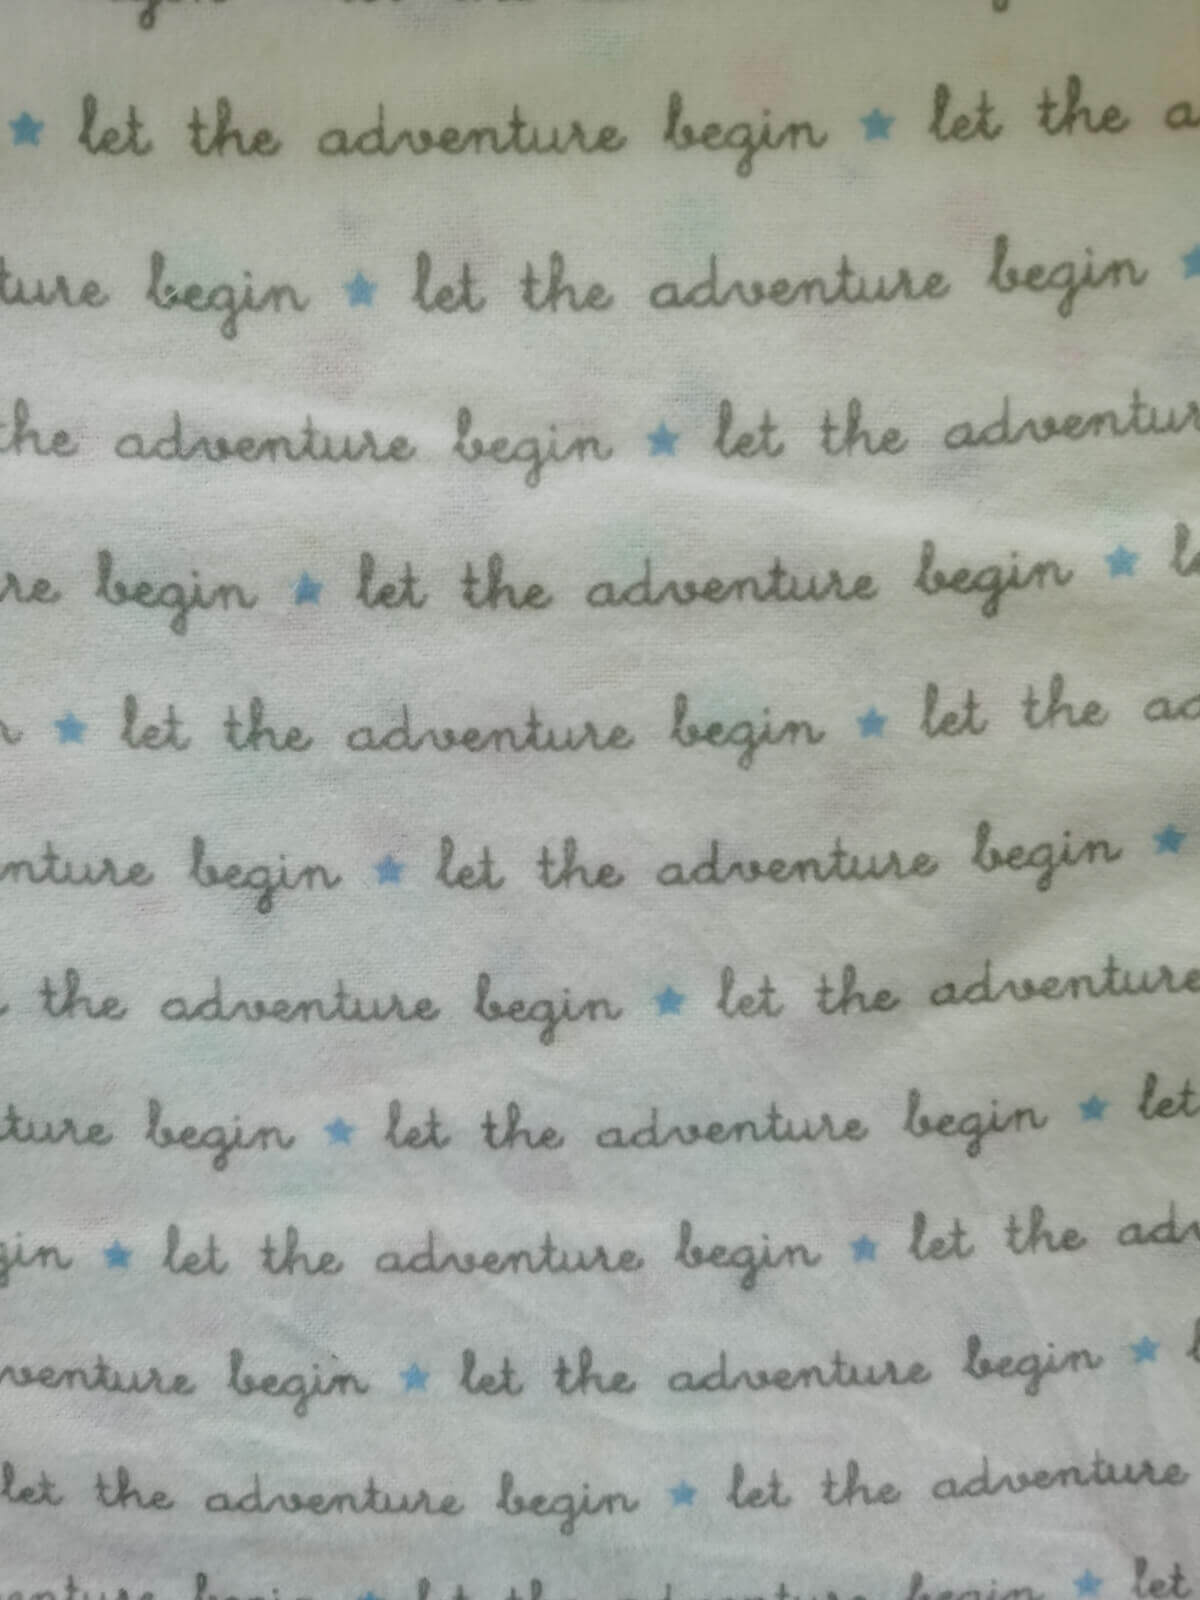 let the adventure begin let the a
ture begin let the adventure begin
the adventure begin let the adventur
re begin let the adventure begin le
n let the adventure begin let the ad
nture begin let the adventure begin
the adventure begin let the adventure
ture begin let the adventure begin let
gin let the adventure begin let the adv
venture begin let the adventure begin
let the adventure begin let the adventure
enture begin let the adventure begin let